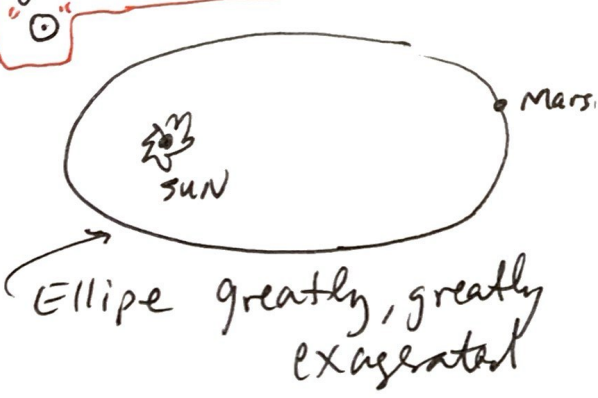 Mars.
SUN
Ellipe greatly, greatly
exagerated